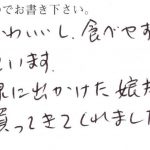 のでお書き下さい。
かわいいし、食べやす
ています。
泉に出かけた娘が
買ってきてくれました